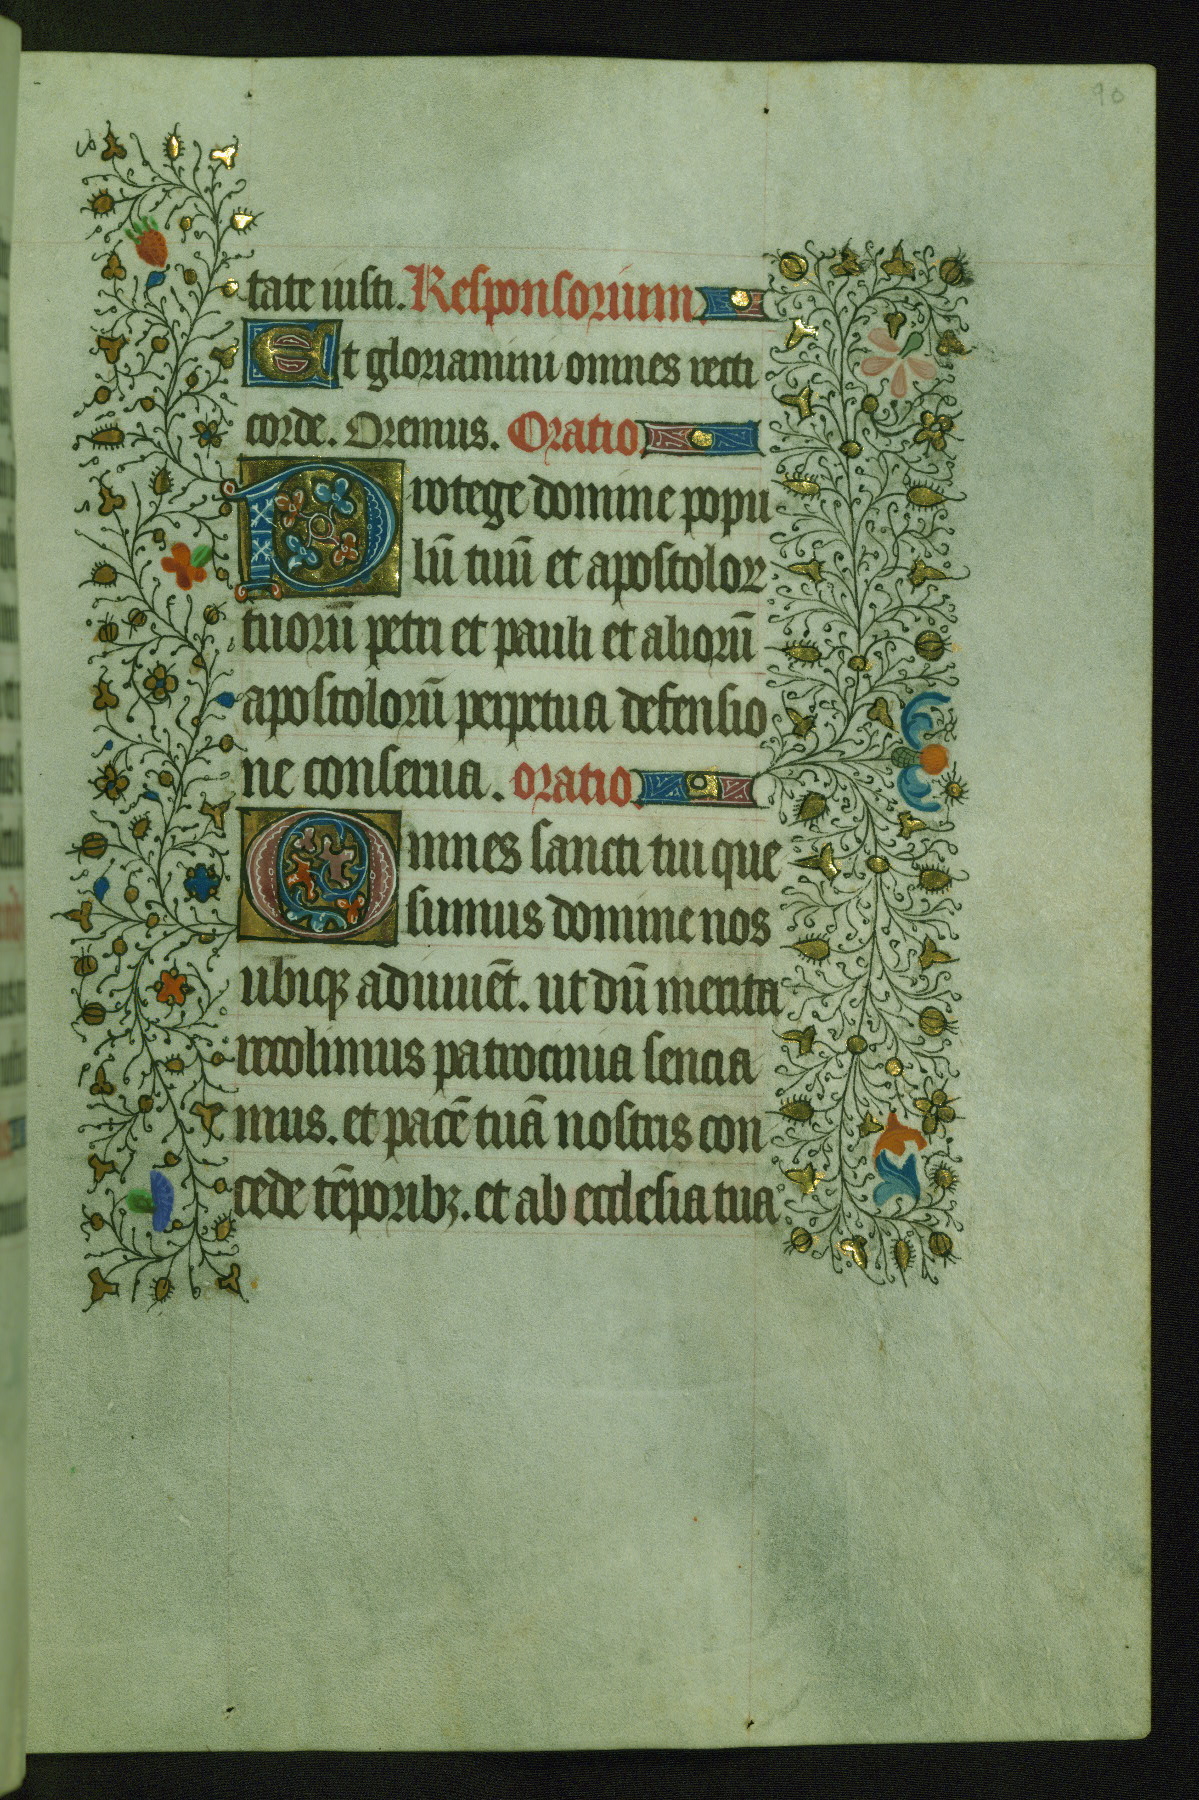 90
tate iusti. Responsorium.
Et gloriamini omnes recti
corde. Oremus. Oratio.
Protege domine popu
lū tuū et apostoloꝝ
tuorū petri et pauli et aliorū
apostolorū perpetua defensio
ne conserua. oratio.
Omnes sancti tui que
sumus domine nos
ubiqꝫ adiuuēt. ut dū merita
recolimus patrocinia sencia
mus. et pacē tuā nostris con
cede tēporibꝫ. et ab ecclesia tua